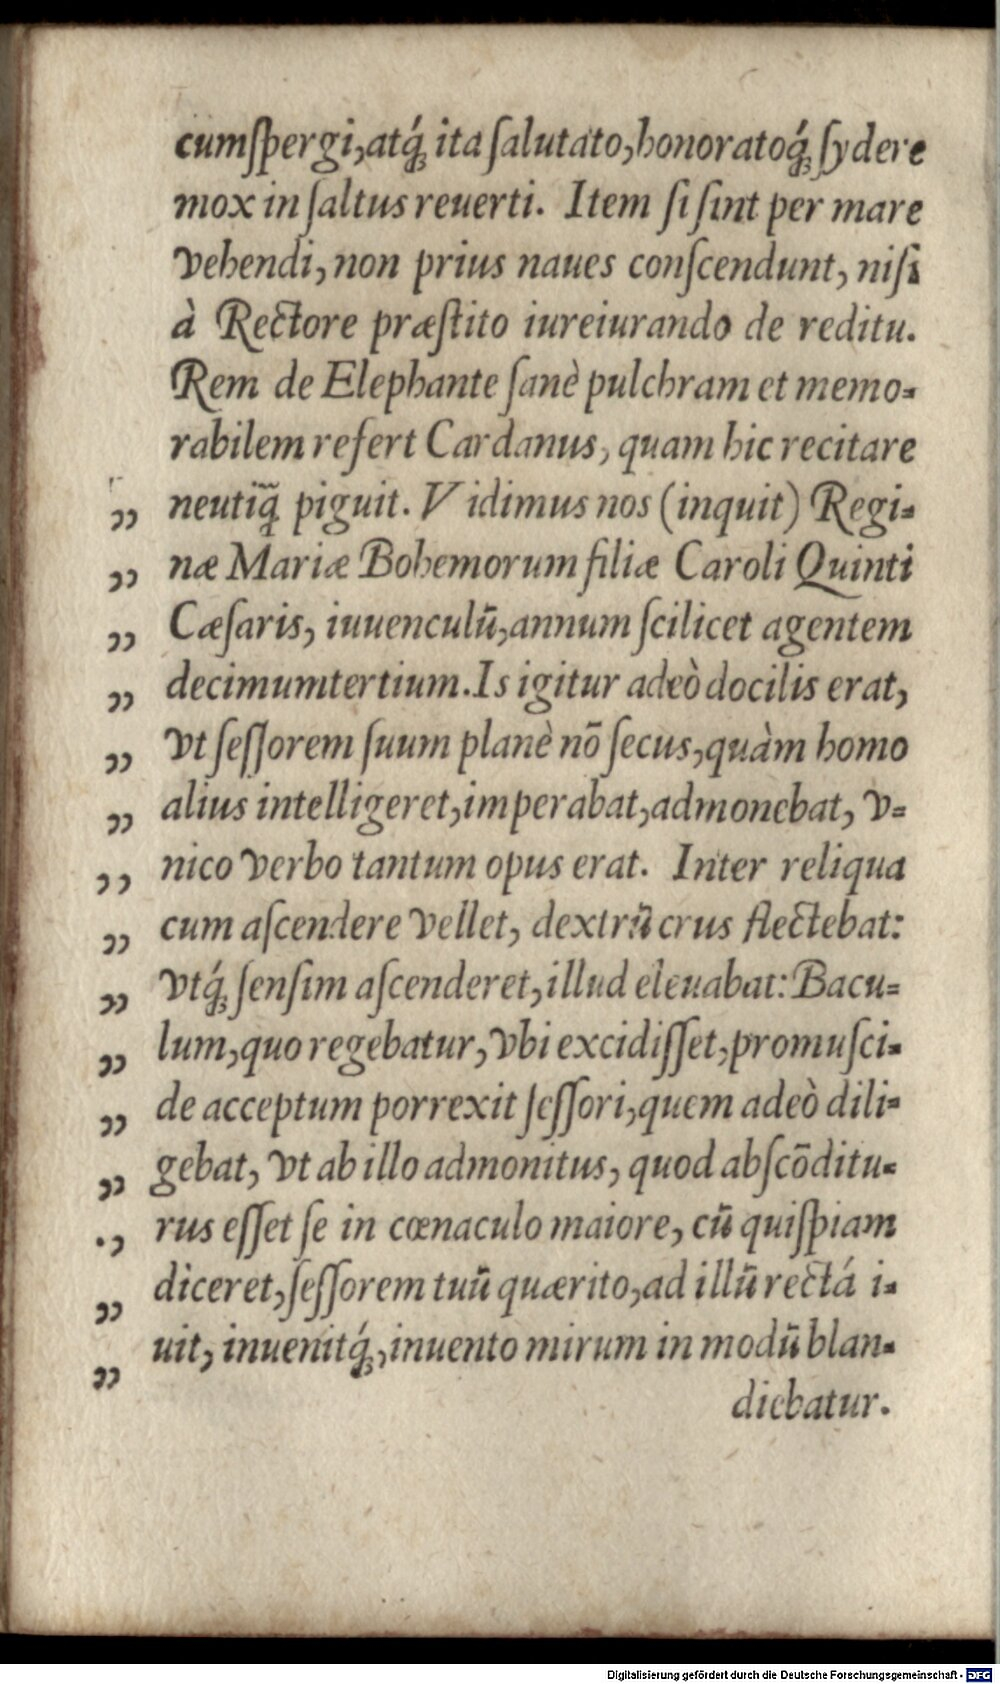 cumſpergi, atq́ꝫ ita ſalutato, honoratoq́ꝫ ſydere
mox in ſaltus reuerti. Item ſi ſint per mare
vehendi, non prius naues conſcendunt, niſi
à Rectore præſtito iureiurando de reditu.
Rem de Elephante ſanè pulchram et memo-
rabilem refert Cardanus, quam hic recitare
„ neutiq̃ piguit. Vidimus nos (inquit) Regi-
„ næ Mariæ Bohemorum filiæ Caroli Quinti
„ Cæſaris, iuuenculũ, annum ſcilicet agentem
„ decimumtertium. Is igitur adeò docilis erat,
„ vt ſeſſorem ſuum planè nõ ſecus, quàm homo
„ alius intelligeret, imperabat, admonebat, v-
„ nico verbo tantum opus erat. Inter reliqua
„ cum aſcendere vellet, dextrũ crus flectebat:
„ vtq́ꝫ ſenſim aſcenderet, illud eleuabat: Bacu-
„ lum, quo regebatur, vbi excidiſſet, promuſci-
„ de acceptum porrexit ſeſſori, quem adeò dili-
„ gebat, vt ab illo admonitus, quod abſcõditu-
„ rus eſſet ſe in cœnaculo maiore, cũ quiſpiam
„ diceret, ſeſſorem tuũ quærito, ad illũ rectá i-
„ uit, inuenitq́ꝫ, inuento mirum in modũ blan-
diebatur.
Digitalisierung gefördert durch die Deutsche Forschungsgemeinschaft - DFG